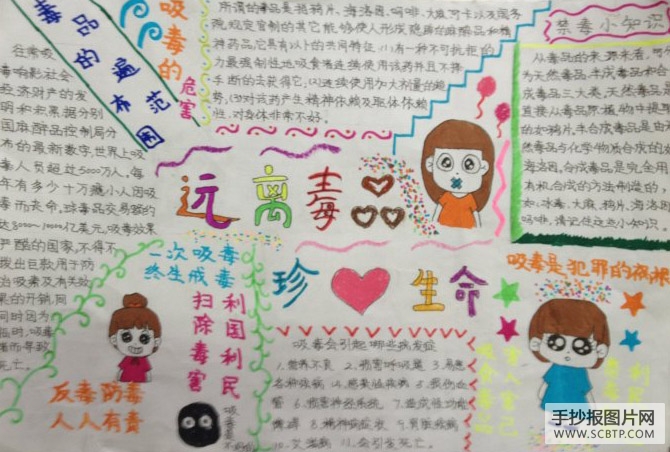 毒品的遍布范围
在常吸
毒响影社会
经济财产的发
分布的最新数字,世界上吸
毒人员超过5000万人,每
年有多少十万
达8000~10000亿美元,吸毒效果
严酷的国家,不得不
拨出巨款用于防
治吸毒及有关效
果的开销,同
时因为
临时,吸毒
者而导致
死亡。
吸毒的危害
所谓的毒品是指鸦片、海洛因、吗啡、大麻、可卡以及国务
院规定管制的其它能够使人形成瘾癖的麻醉品和精
神药品,它具有以下的共同特征:(1)有一种不可抗拒的
力量强制性地吸食者连续使用该药并且不择
手断的去获得它,(2)连续使用加大剂量的趋
势,(3)对该药产生精神依赖及躯体依赖
性,对身体非常不好。
禁毒小知识
从毒品的来源来看,
为天然毒品,半成毒品和
成毒品三大类,天然毒品是
直接从毒品原植物中提取
的如鸦片,半合成毒品是由
然毒品与化学物质合成的如
海洛因,合成毒品是完全用
有机合成的方法制造的
如,冰毒、大麻、鸦片、海洛因
吗啡,请记住这些小知识。
远离毒品
珍❤生命
一次吸毒
终生戒毒
利国利民
扫除毒害
反毒防毒
人人有责
吸毒会引起哪些病发症
1.营养不良 2.损害呼吸道 3.易患
各种疾病 4.感染性疾病 5.损伤血
管 6.损害神经系统 7.造成性功能
障碍 8.精神病症状 9.肾脏疾病
10. 11.会引言死亡。
吸毒是犯罪的祸根
害人害己
吸食毒品
利民
手抄报图片网
WWW.SCBTP.COM